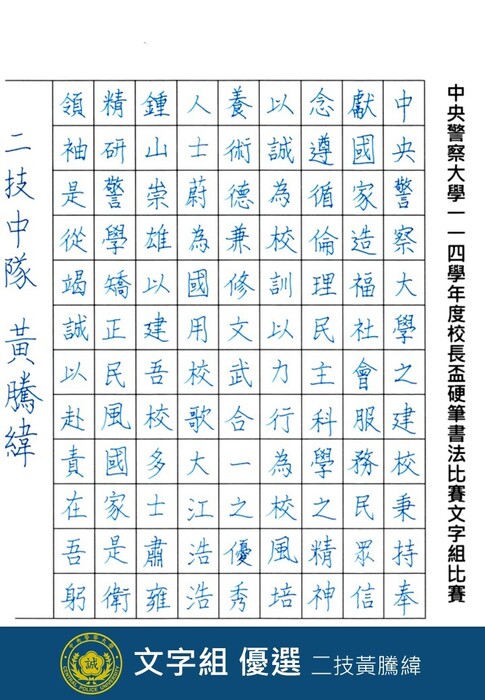 中央警察大學一一四學年度校長盃硬筆書法比賽文字組比賽
中央警察大學之建校秉持奉
獻國家造福社會服務民眾信
念遵循倫理民主科學之精神
以誠為校訓以力行為校風培
養術德兼修文武合一之優秀
人士蔚為國用校歌大江浩浩
鍾山崇雄以建吾校多士肅雍
精研警學矯正民風國家是衛
領袖是從竭誠以赴責在吾躬
二技中隊 黃騰緯
中央警察大學
誠
CENTRAL POLICE UNIVERSITY
文字組 優選 二技黃騰緯